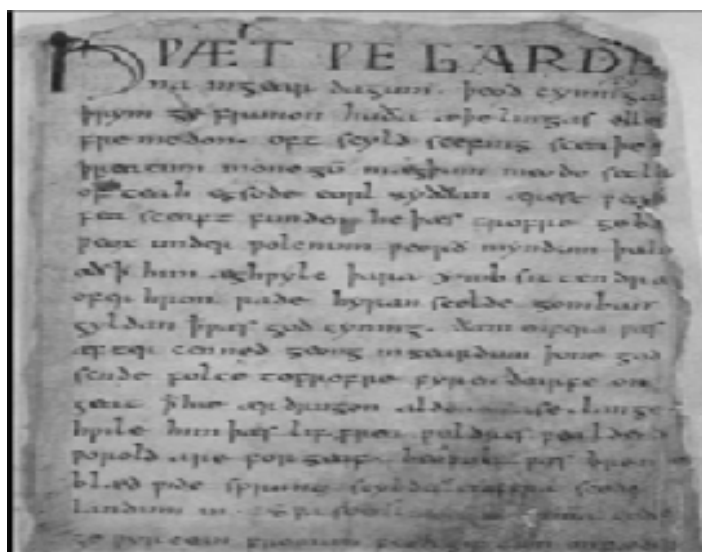 HǷÆT ǷE GARDE
na ingear dagum. þeod cyninga
þrym ge frunon huða æþelingas elle
fre medon. oft scyld scefing sceaþe
þreatum monegū mægþum meodo setla
of teah egsode eorl syððan ærest ƿearð
fea sceaft funden he þæs frofre geba
ƿeox under ƿolcnum ƿeorð myndum þah
oð ꝥ him æghƿylc þara ymb sittendra
ofer hron rade hyran scolde gomban
gyldan ꝥ ƿæs god cyning. ðæm eafera ƿæs
æfter cenned geong ingeardum þone god
sende folce tofrofre fyren ðearfe on
geat ꝥ hie ær drugon aldor ase. lange
hƿile him þæs lif frea ƿuldres ƿealde
ƿorold are for geaf. beoƿulf ƿæs breme
blæd ƿide sprang scyldes eafera scede
landum in.
ge ƿyrcean fromum feoh giftum